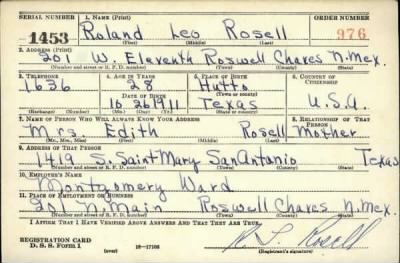 SERIAL NUMBER 1. NAME (Print) ORDER NUMBER
1453 Roland Leo Rosell 976
(First) (Middle) (Last)
2. ADDRESS (Print)
201 W. Eleventh Roswell Chaves N. Mex.
(Number and street or R. F. D. number) (Town) (County) (State)
3. TELEPHONE 4. AGE IN YEARS 5. PLACE OF BIRTH 6. COUNTRY OF CITIZENSHIP
1636 28 Hutto
DATE OF BIRTH (Town or county)
10 26 1911 Texas U.S.A.
(Exchange) (Number) (Mo.) (Day) (Yr.) (State or country)
7. NAME OF PERSON WHO WILL ALWAYS KNOW YOUR ADDRESS 8. RELATIONSHIP OF THAT PERSON
Mrs. Edith Rosell Mother
(Mr., Mrs., Miss) (First) (Middle) (Last)
9. ADDRESS OF THAT PERSON
1419 S. Saint Mary San Antonio Texas
(Number and street or R. F. D. number) (Town) (County) (State)
10. EMPLOYER'S NAME
Montgomery Ward
11. PLACE OF EMPLOYMENT OR BUSINESS
201 N. Main Roswell Chaves N. Mex.
(Number and street or R. F. D. number) (Town) (County) (State)
I AFFIRM THAT I HAVE VERIFIED ABOVE ANSWERS AND THAT THEY ARE TRUE.
REGISTRATION CARD
D. S. S. FORM 1 (over) 16-17105 Rosell
(Registrant's signature)